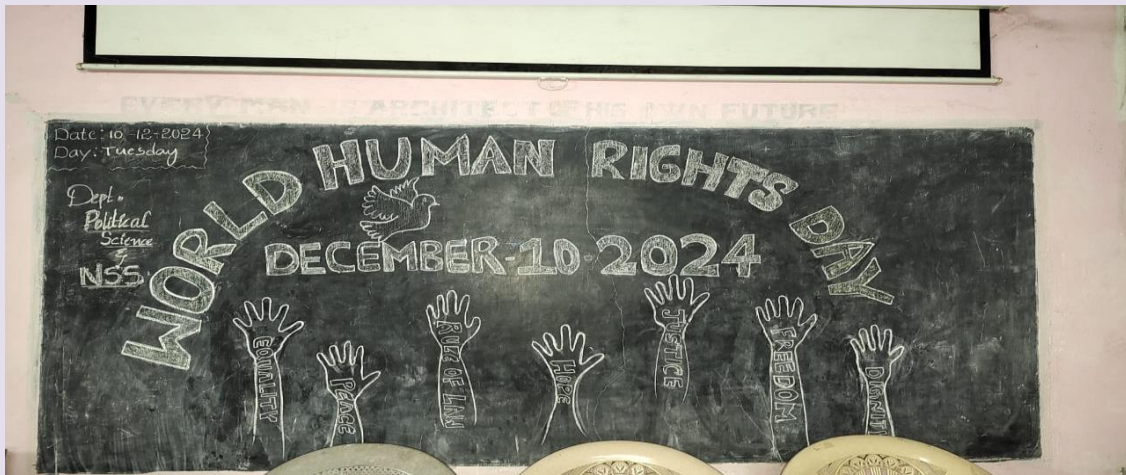 EVERY MAN IS ARCHITECT OF HIS OWN FUTURE
Date: 10-12-2024
Day: Tuesday
Dept.
Political
Science
&
NSS
WORLD HUMAN RIGHTS DAY
DECEMBER-10-2024
EQUALITY
PEACE
RULE OF LAW
HOPE
JUSTICE
FREEDOM
DIGNITY